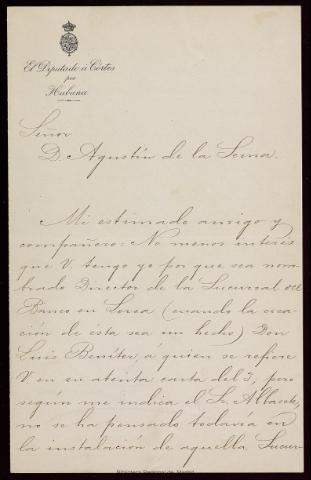 El Diputado á Córtes
por
Habana
Señor
D. Agustín de la Serna.
Mi estimado amigo y
compañero: No menor interés
que V. tengo yo por que sea nom-
brado Director de la Sucursal del
Banco en Lorca (cuando la crea-
ción de ésta sea un hecho) Don
Luis Benítez, á quien se refiere
V. en su atenta carta del 3; pero
según me indica el Sr. Albacete,
no se ha pensado todavía en
la instalación de aquella Sucur-
Biblioteca Regional de Madrid